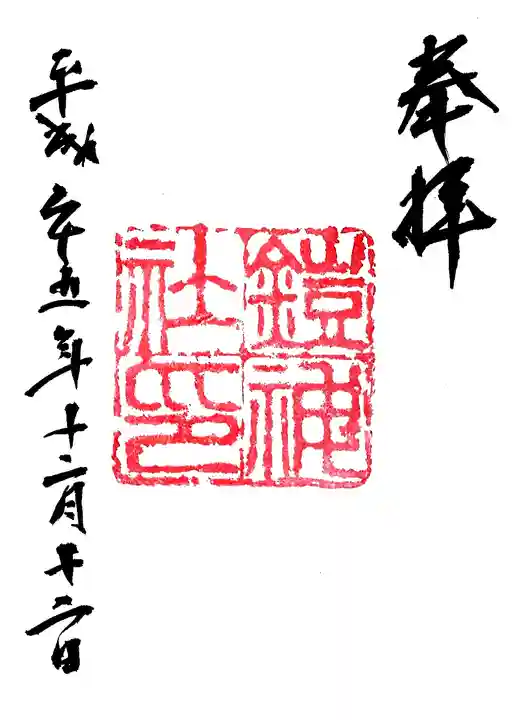 奉拝
鎧神
社印
平成二十五年十二月十二日